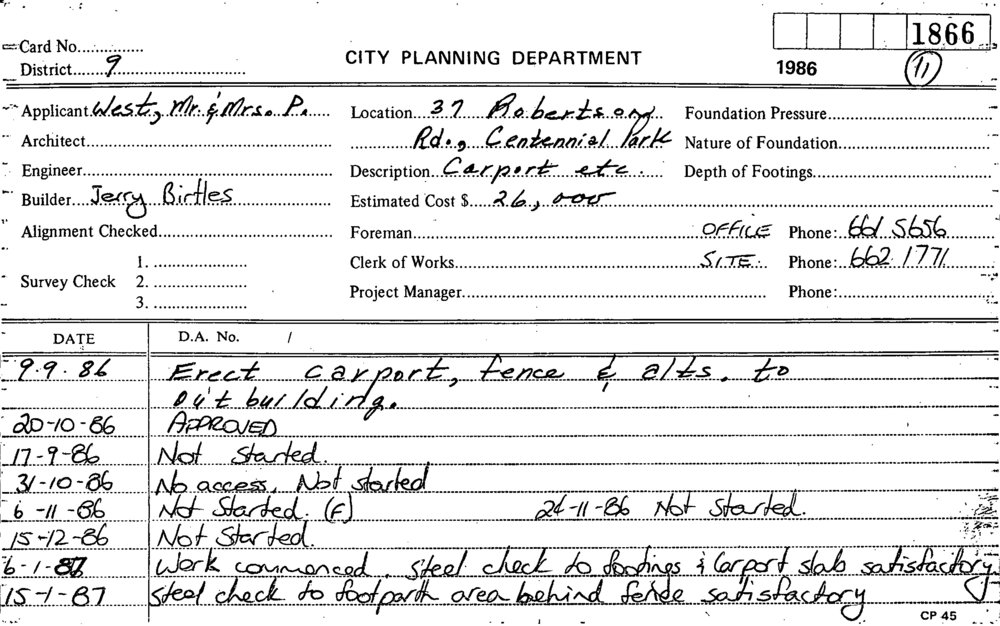 Card No...............
1866
District........9................................
CITY PLANNING DEPARTMENT
1986
11
Applicant West, Mr. & Mrs. P.
Location....37 Robertson
Foundation Pressure
Architect
Rd., Centennial Park
Nature of Foundation
Engineer
Description Carport etc.
Depth of Footings
Builder Jerry Birtles
Estimated Cost $ 26,000
Alignment Checked
Foreman OFFICE Phone: 661 5656
Survey Check 1.
Clerk of Works SITE: Phone: 662 1771
2.
Project Manager Phone:
3.
DATE D.A. No. /
9.9.86 Erect carport, fence & alts. to
outbuilding.
20-10-86 APPROVED
17-9-86 Not Started.
31-10-86 No access, Not started
6-11-86 Not Started. (F) 24-11-86 Not Started.
15-12-86 Not Started.
6-1-87 Work commenced, steel check to footings & Carport slab satisfactory
15-1-87 steel check to footpath area behind fence satisfactory
CP 45